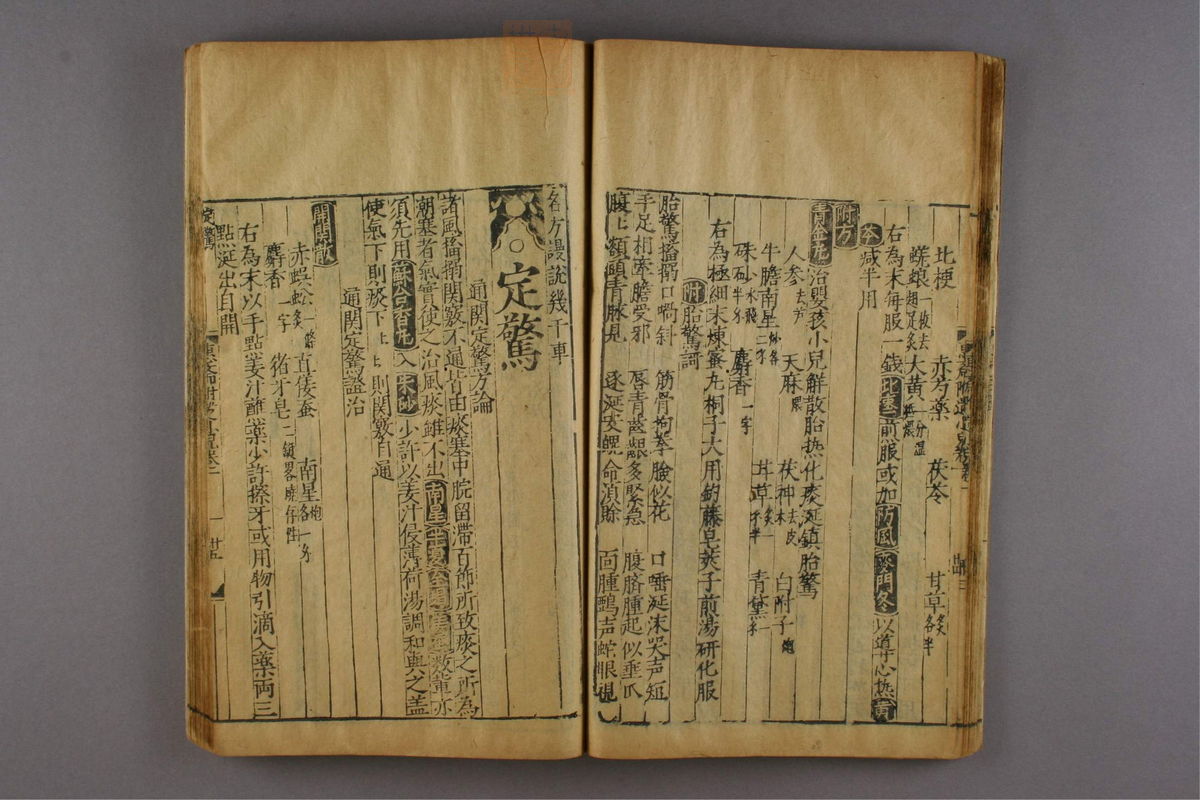 北梗 赤芍藥 茯苓 甘草炙各半
蜣蜋一枚去翅足炙 大黃一分温紙煨
右為末每服一錢此藥煎服或加防風麥門冬以導心热黃
芩減半用
附方
青金丸治嬰孩小兒解散胎热化痰涎鎮胎驚
人参去芦 天麻煨 茯神去皮木 白附子炮
牛膽南星炒各二分 茸草炙一 青黛一
硃砂水飛半分 麝香一字
右為極細末煉蜜丸桐子大用鈎藤皂莢子煎湯研化服
附胎驚謌
胎驚搐搦口喎斜 筋骨拘拳臉似花 口唾涎沫哭声短
手足相牽膽受邪 唇青齒齦多緊急 腹脐腫起似垂瓜
腹上額頭青脉見 逐涎安魄命須賒 面腫鵶声蛇眼視
各方謾說幾千車
定驚
通関定驚方論
諸風搐搦関竅不通皆由痰塞中脘留滯百節所致痰之所為
潮塞者氣實使之治風痰雖不出南星半夏
須先用蘇合香丸入朱砂少許以姜汁侵薄荷湯調和與之盖
使氣下則痰下痰下則関竅自通
通関定驚證治
開関散
赤蜈蚣炙 直僵蚕 南星炮各一分
麝香一字 猪牙皂二錢畧燒存性
右為末以手點姜汁蘸藥少許擦牙或用物引滴入藥両三
點涎出自開
定驚